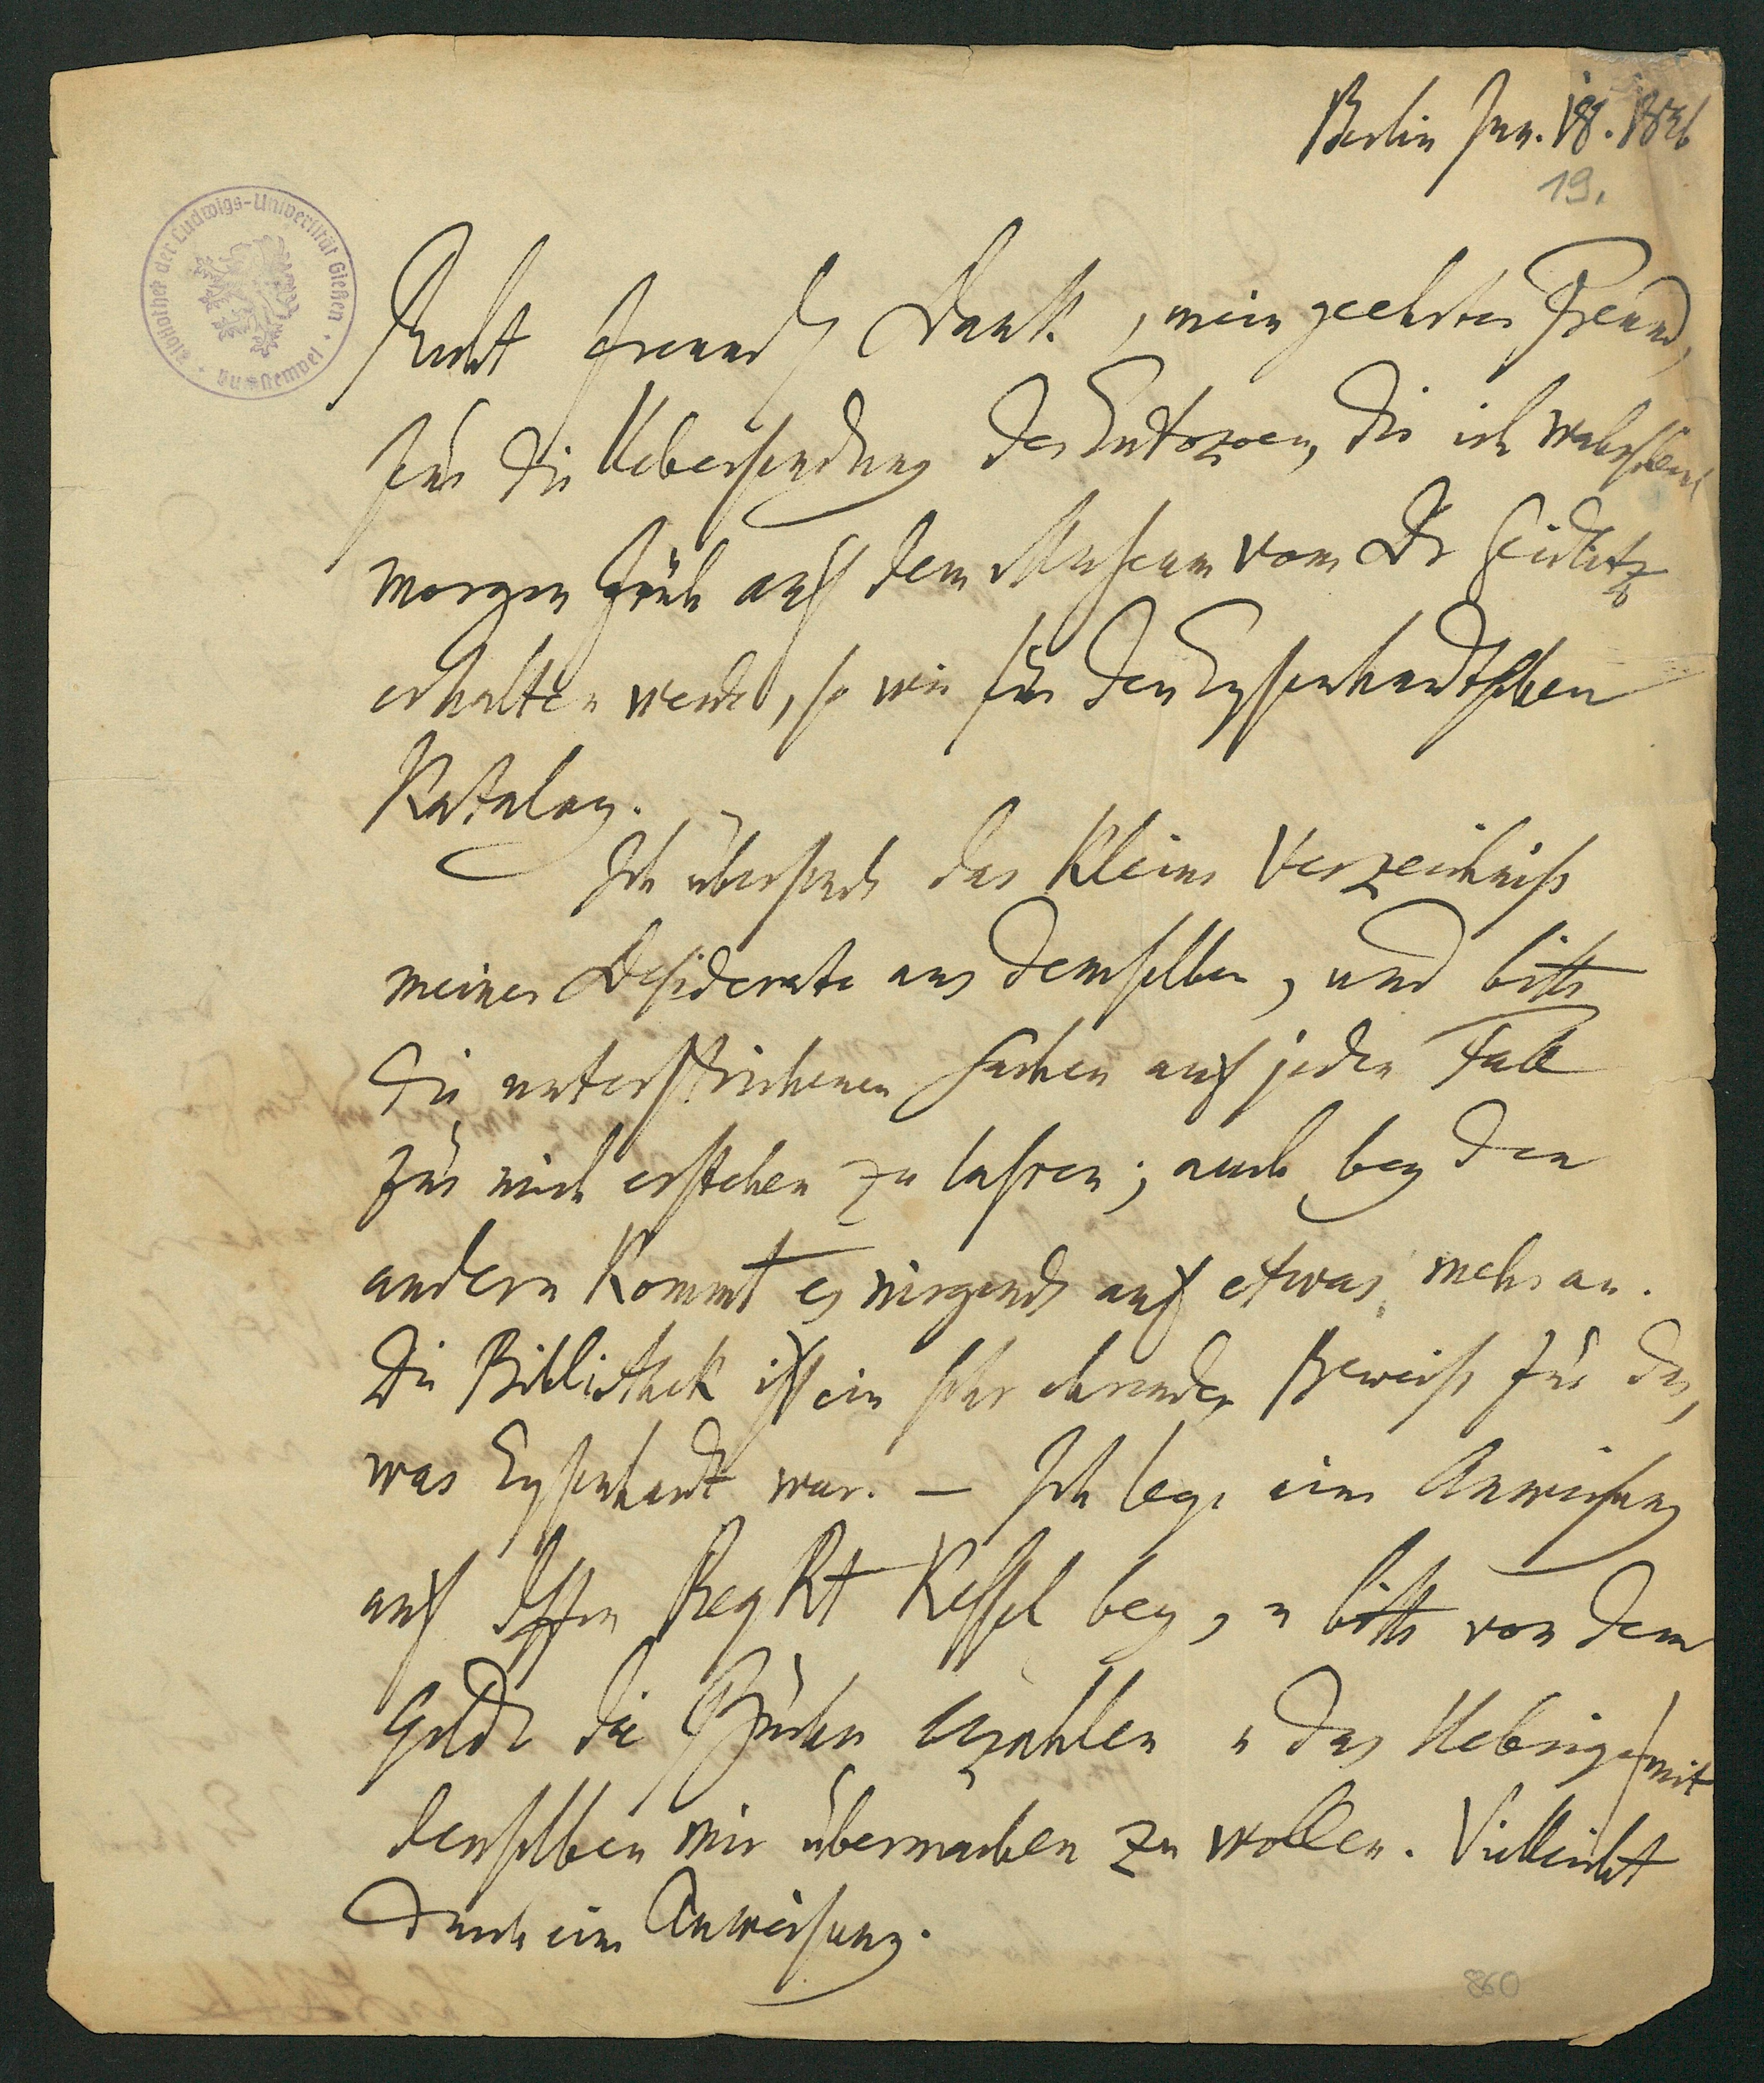 Berlin Jan. 18. 1826
19.
Bibliothek der Ludwigs-Universität Gießen
Recht freundl Dank, mein geehrter Freund,
für die Uebersendung der Entozoen, die ich wahrscheinl
morgen früh auf dem Museum vom Dr Seidlitz
erhalten werde, so wie für den Eysenhardtschen
Katalog.
Ich übersende das kleine Verzeichniß
meiner Desiderate aus demselben, und bitte
die unterstrichenen Sachen auf jeden Fall
für mich erstehen zu lassen; auch bey den
andern kommt es nirgends auf etwas mehr an.
Die Bibliothek ist ein sehr ehrender Beweiß für das,
was Eysenhardt war. — Ich lege eine Anweisung
auf Reg Rt Kessel bey, u bitte von dem
Gelde die Bücher zu zahlen u das Uebrige mit
denselben mir übermachen zu wollen. Vielleicht
durch eine Anweisung.
860